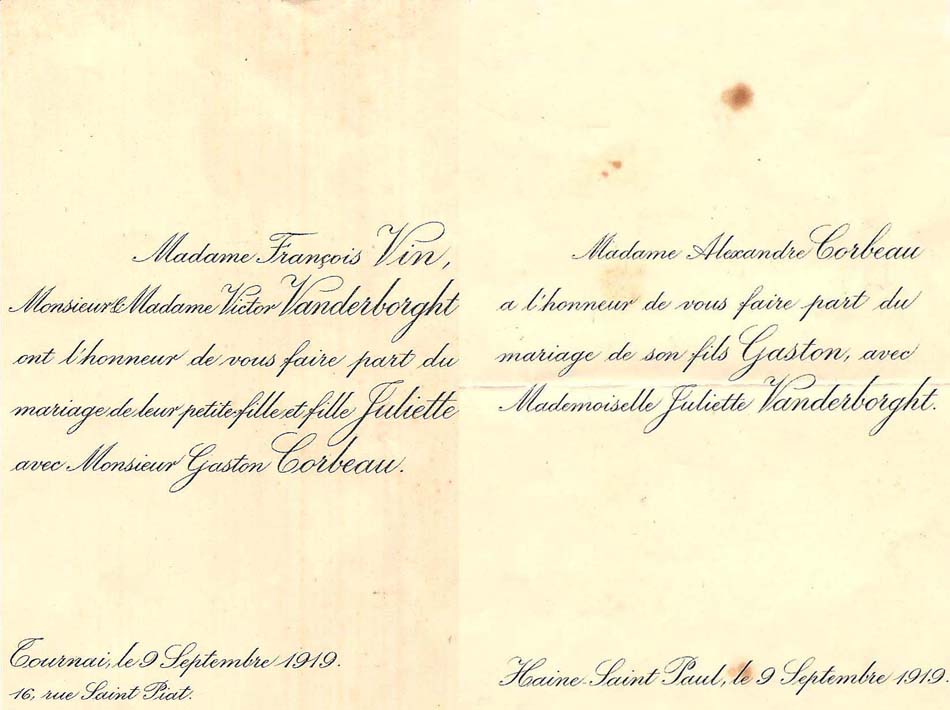 Madame François Vin,
Monsieur & Madame Victor Vanderborght
ont l'honneur de vous faire part du
mariage de leur petite-fille et fille Juliette
avec Monsieur Gaston Corbeau.
Tournai, le 9 Septembre 1919.
16, rue Saint Piat.
Madame Alexandre Corbeau
a l'honneur de vous faire part du
mariage de son fils Gaston, avec
Mademoiselle Juliette Vanderborght.
Haine-Saint Paul, le 9 Septembre 1919.